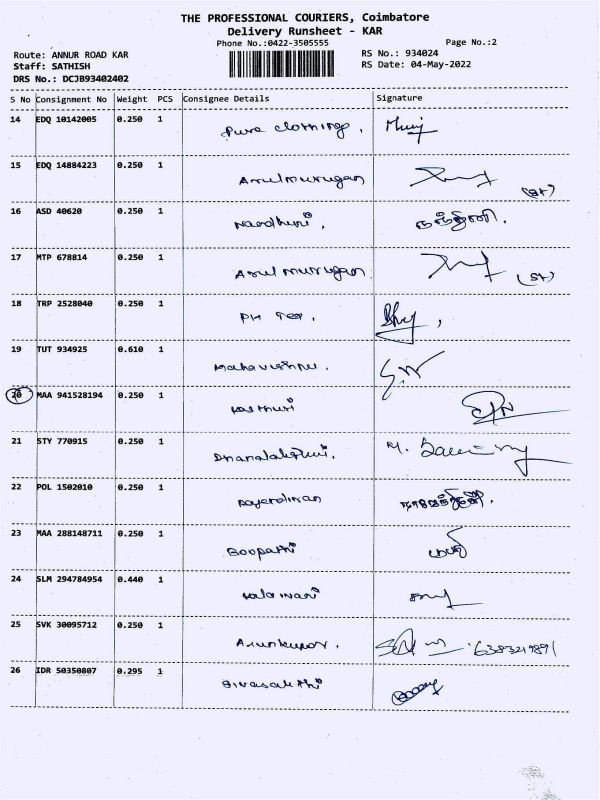 THE PROFESSIONAL COURIERS, Coimbatore
Delivery Runsheet - KAR
Phone No.:0422-3505555 Page No.:2
Route: ANNUR ROAD KAR RS No.: 934024
Staff: SATHISH RS Date: 04-May-2022
DRS No.: DCJB93402402
S No Consignment No Weight PCS Consignee Details Signature
14 EDQ 10142005 0.250 1 Pure Clothings,
15 EDQ 14884223 0.250 1 Arulmurugan
16 ASD 40620 0.250 1 Nandhini,
17 MTP 678814 0.250 1 Arulmurugan
18 TRP 2528040 0.250 1 PH Tex,
19 TUT 934925 0.610 1 Mahavishnu.
20 MAA 941528194 0.250 1 Kasthuri
21 STY 770915 0.250 1 Dhanalakshmi.
22 POL 1502010 0.250 1
23 MAA 288148711 0.250 1 Boopathi
24 SLM 294784954 0.440 1 Kalaivani
25 SVK 30095712 0.250 1 Arunkumar.
26 IDR 50350807 0.295 1 Sivasakthi